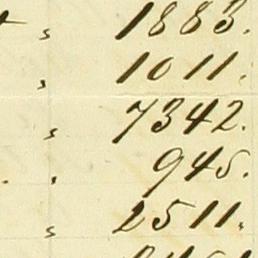 " 1883.
" 1011.
" 7342.
" 945.
" 2511.